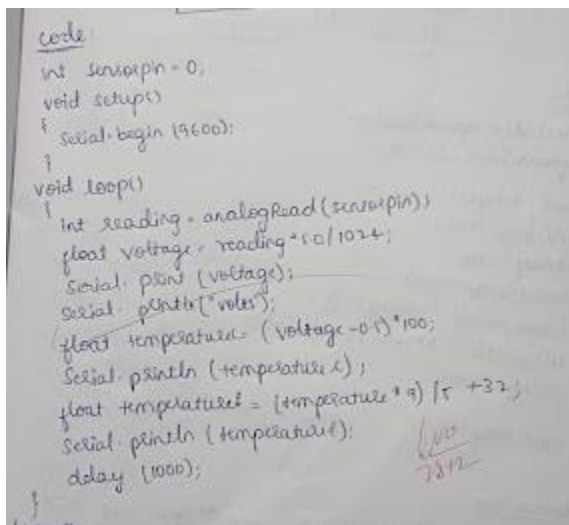 code
int sensorpin = 0;
void setup()
{ Serial.begin (9600);
}
void loop()
{
int reading = analogRead(sensorpin);
float voltage = reading * 5.0/1024;
Serial.print (voltage);
Serial.println("volts");
float temperaturec = (voltage - 0.5) * 100;
Serial.println (temperature c);
float temperaturef = (temperature * 9) /5 +32;
Serial.println (temperaturef);
delay (1000);
}